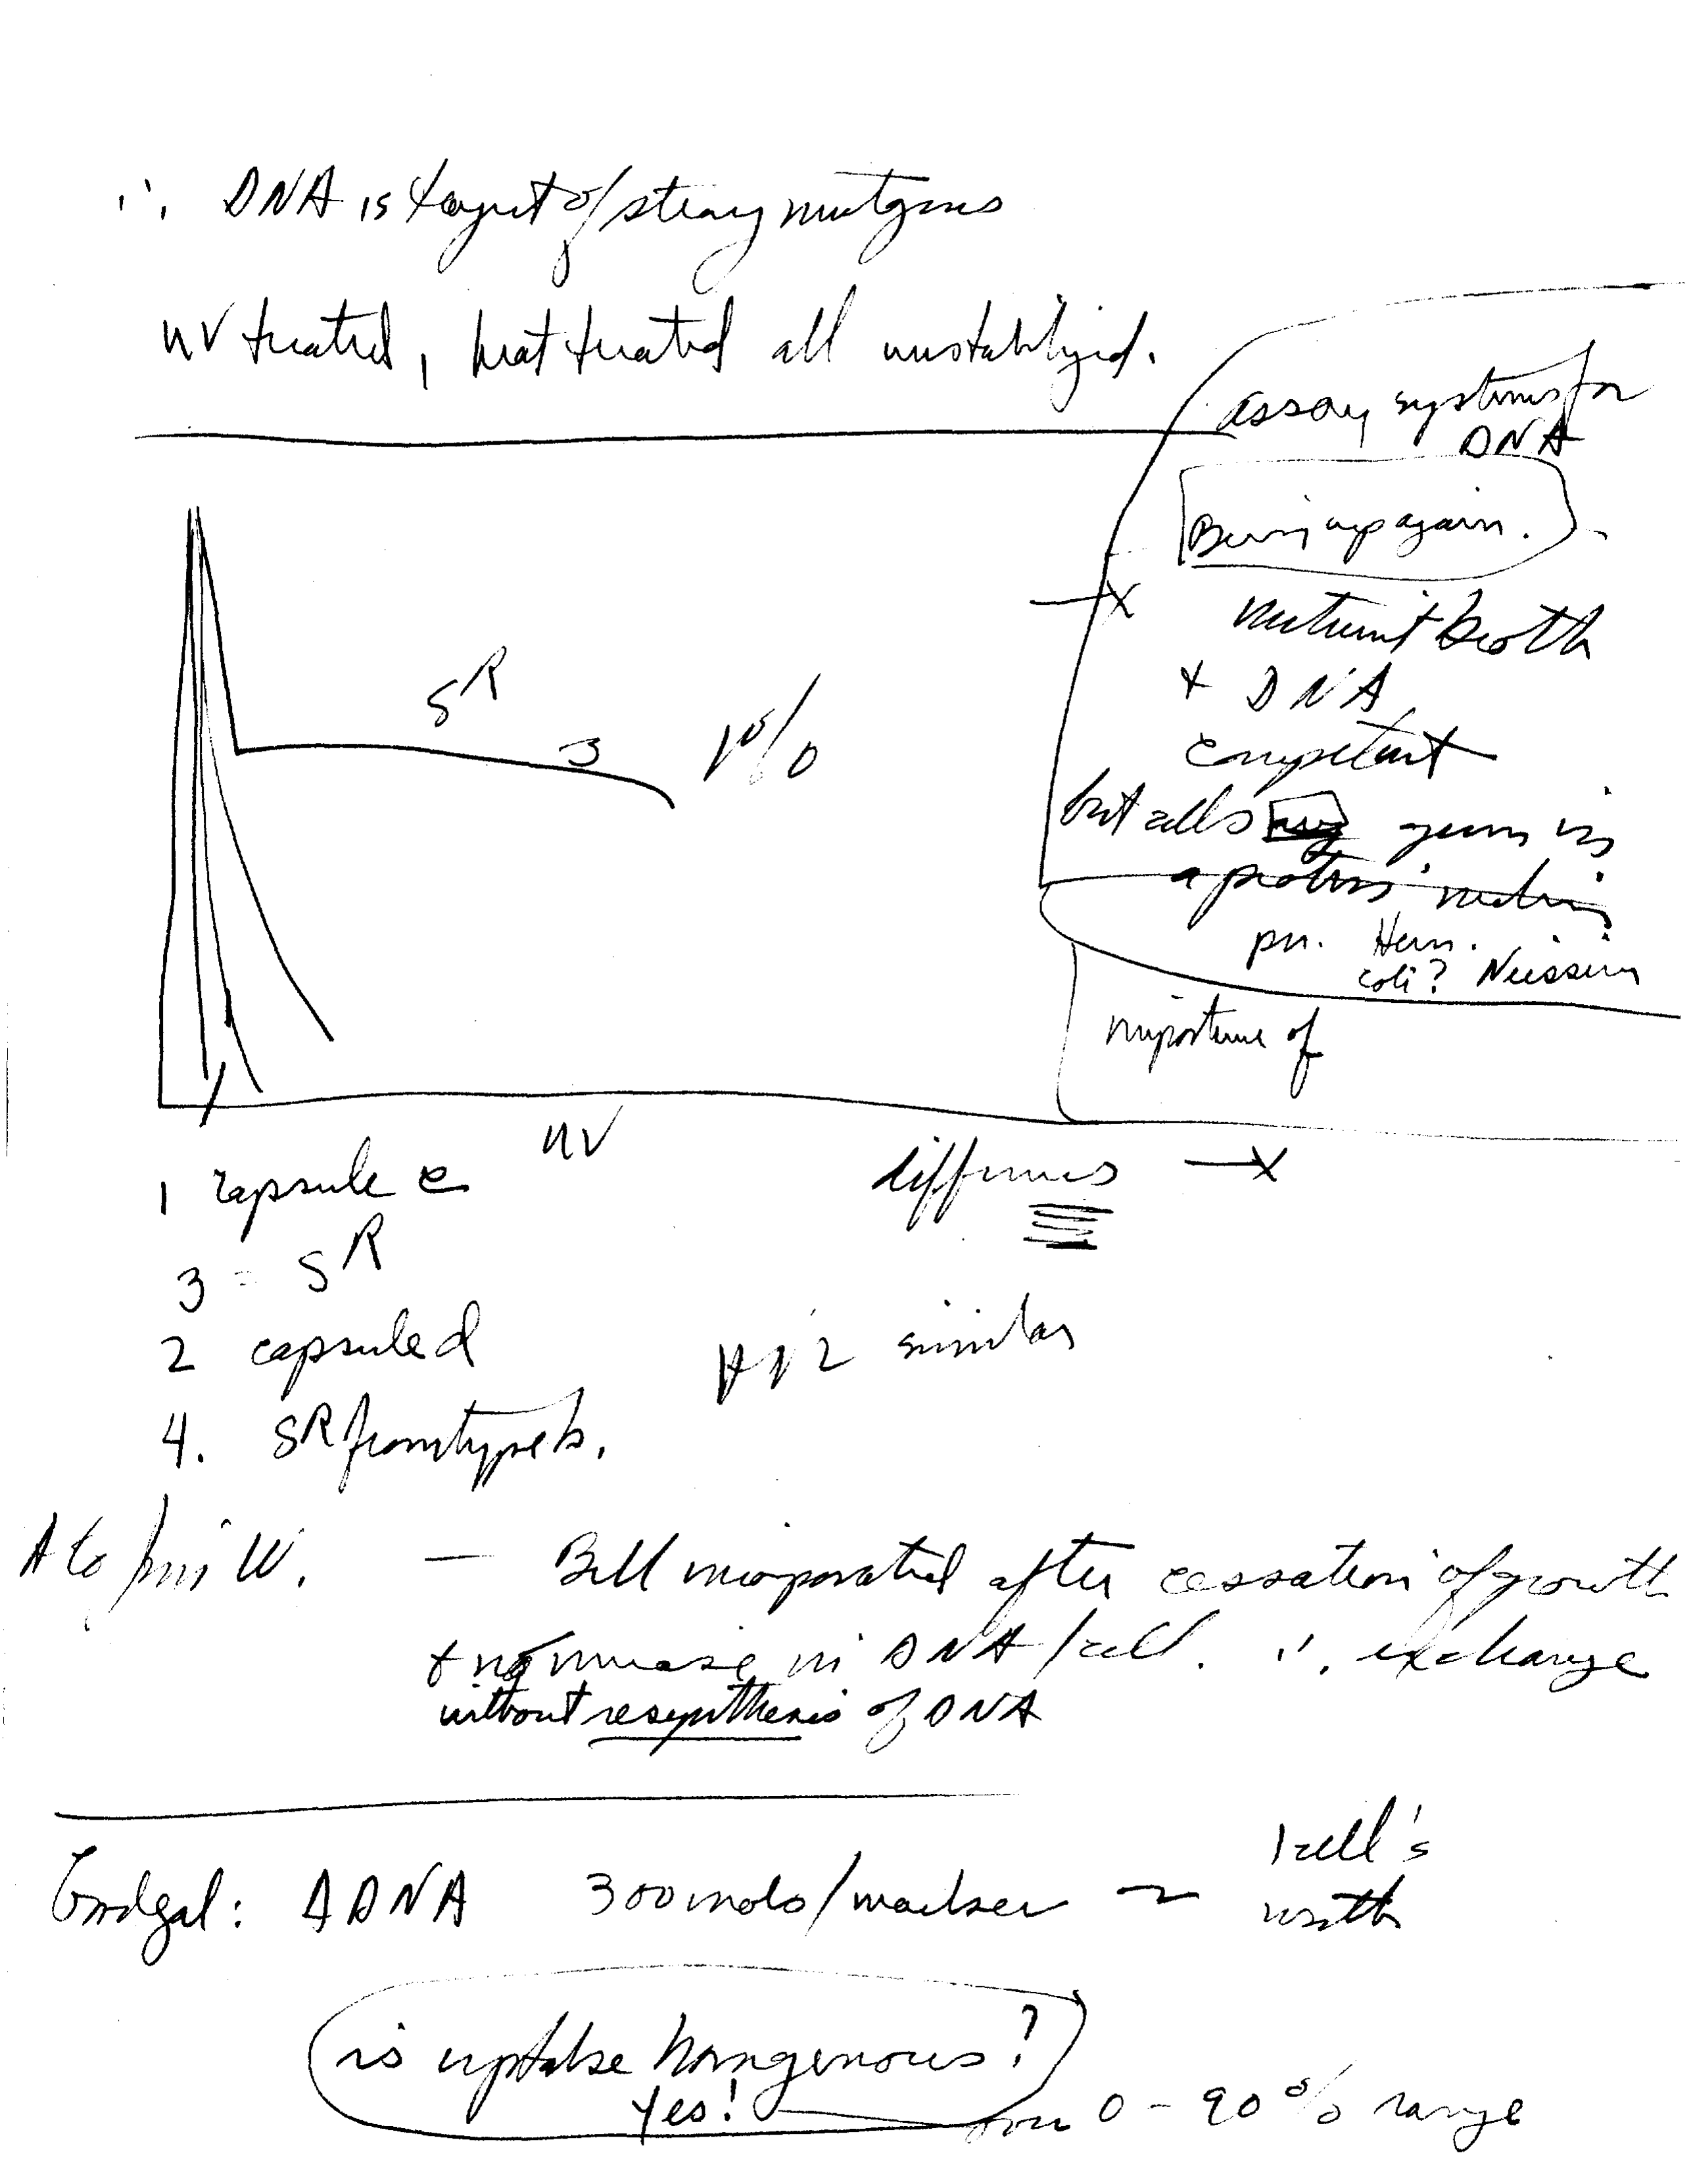 ∴ DNA is target of strong mutgens
UV treated, heat treated all unstabilized.
assay systems for
DNA
up again.
nutrient broth
+ DNA
competent
but cells grown in
a
pn. Hem.
coli? Neisseria
importance of
S^R
3
1%
UV
differences →
1 capsule e
3 = S^R
2 capsule d
1 + 2 similar
4. S^R from type b.
incorporated after cessation of growth
+ no increase in DNA/cell. ∴ exchange
without resynthesis of DNA
Goodgal: DNA 300 mols/marker ~ 1 cell's
worth
is uptake homogenous?
Yes! over 0 - 90% range